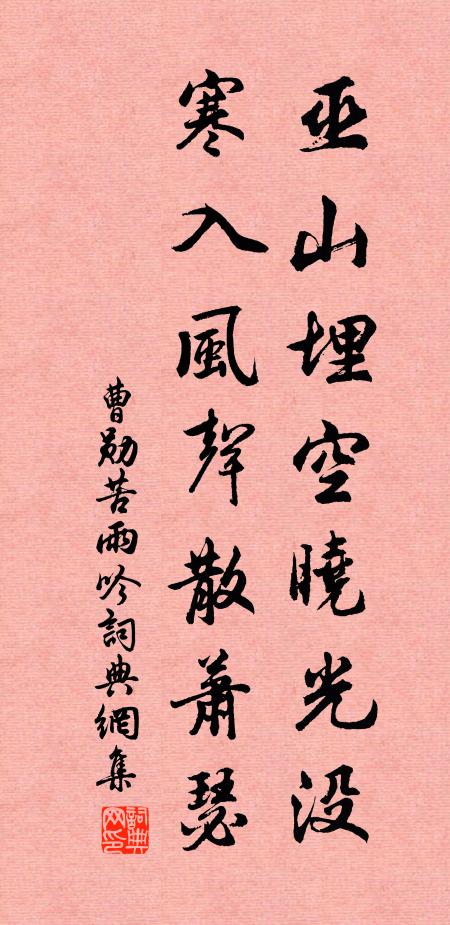 巫山埋空曉光没
寒入風聲散蕭瑟
曹勛苦雨吟詞典網集
詞典網印